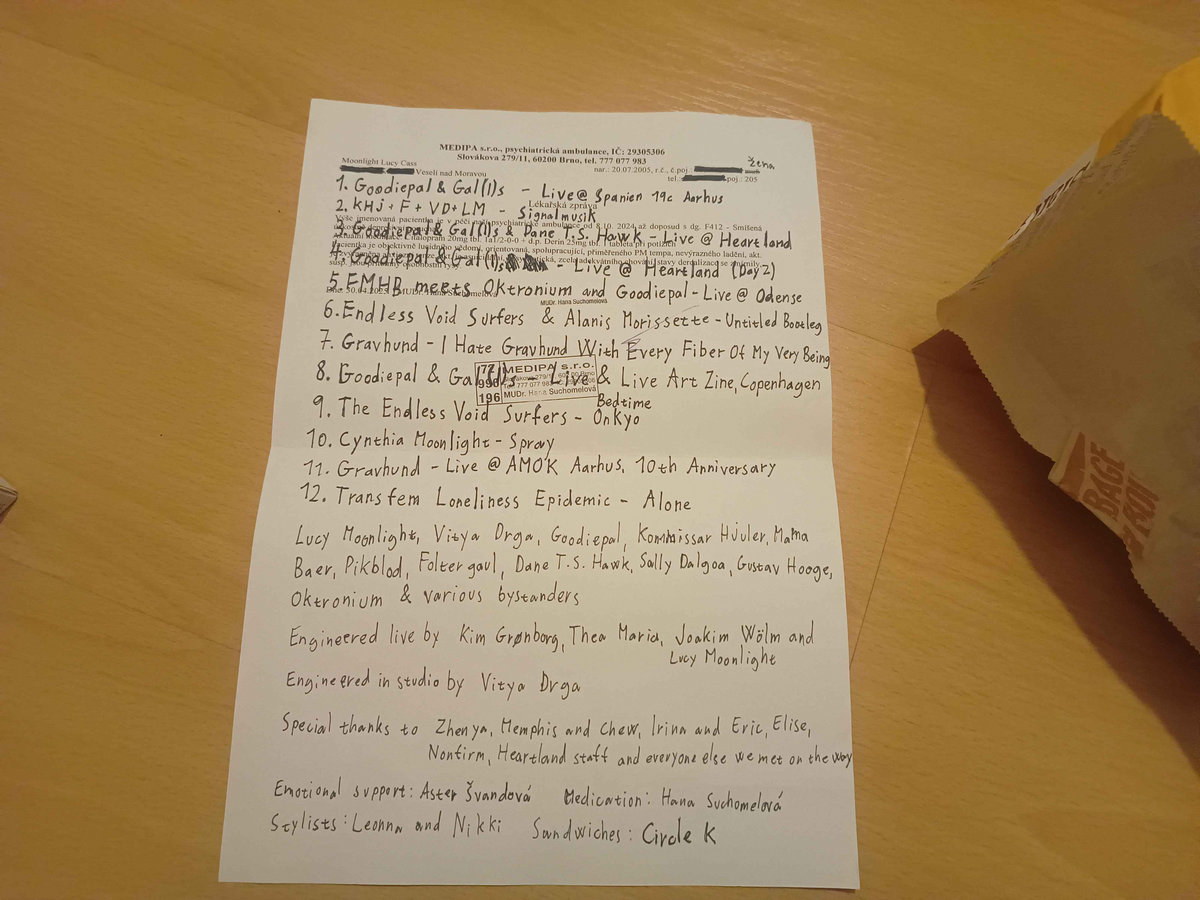 MEDIPA s.r.o., psychiatrická ambulance, IČ: 29305306
Slovákova 279/11, 60200 Brno, tel. 777 077 983
žena
Moonlight Lucy Cass
nar.: 20.07.2005, r.č., č.poj.:
Veselí nad Moravou
tel.: poj.: 205
1. Goodiepal & Gal(l)s - Live @ Spanien 19c Aarhus
Lékařská zpráva
2. KHJ + F + VD + LM - Signalmusik
Výše jmenovaná pacientka je v péči naší psychiatrické ambulance od 8.10. 2024 až doposud s dg. F412 - Smíšená
3. Goodiepal & Gal(l)s & Dane T.S. Hawk - Live @ Heartland
4. Goodiepal & Gal(l)s - Live @ Heartland (Day 2)
5. EMHR meets Oktronium and Goodiepal - Live @ Odense
MUDr. Hana Suchomelová
6. Endless Void Surfers & Alanis Morissette - Untitled Bootleg
7. Gravhund - I Hate Gravhund With Every Fiber Of My Very Being
8. Goodiepal & Gal(l)s - Live & Live Art Zine, Copenhagen
72 996 196
MEDIPA s.r.o.
MUDr. Hana Suchomelová
9. The Endless Void Surfers - Bedtime Onkyo
10. Cynthia Moonlight - Spray
11. Gravhund - Live @ AMOK Aarhus, 10th Anniversary
12. Transfem Loneliness Epidemic - Alone
Lucy Moonlight, Vitya Drga, Goodiepal, Kommissar Hjuler, Mama
Baer, Pikblod, Foltergaul, Dane T.S. Hawk, Sally Dalgoa, Gustav Hooge,
Oktronium & various bystanders
Engineered live by Kim Grønborg, Thea Maria, Joakim Wölm and
Lucy Moonlight
Engineered in studio by Vitya Drga
Special thanks to Zhenya, Memphis and Chew, Irina and Eric, Elise,
Nonfirm, Heartland staff and everyone else we met on the way
Emotional support: Aster Švandová Medication: Hana Suchomelová
Stylists: Leonna and Nikki Sandwiches: Circle K